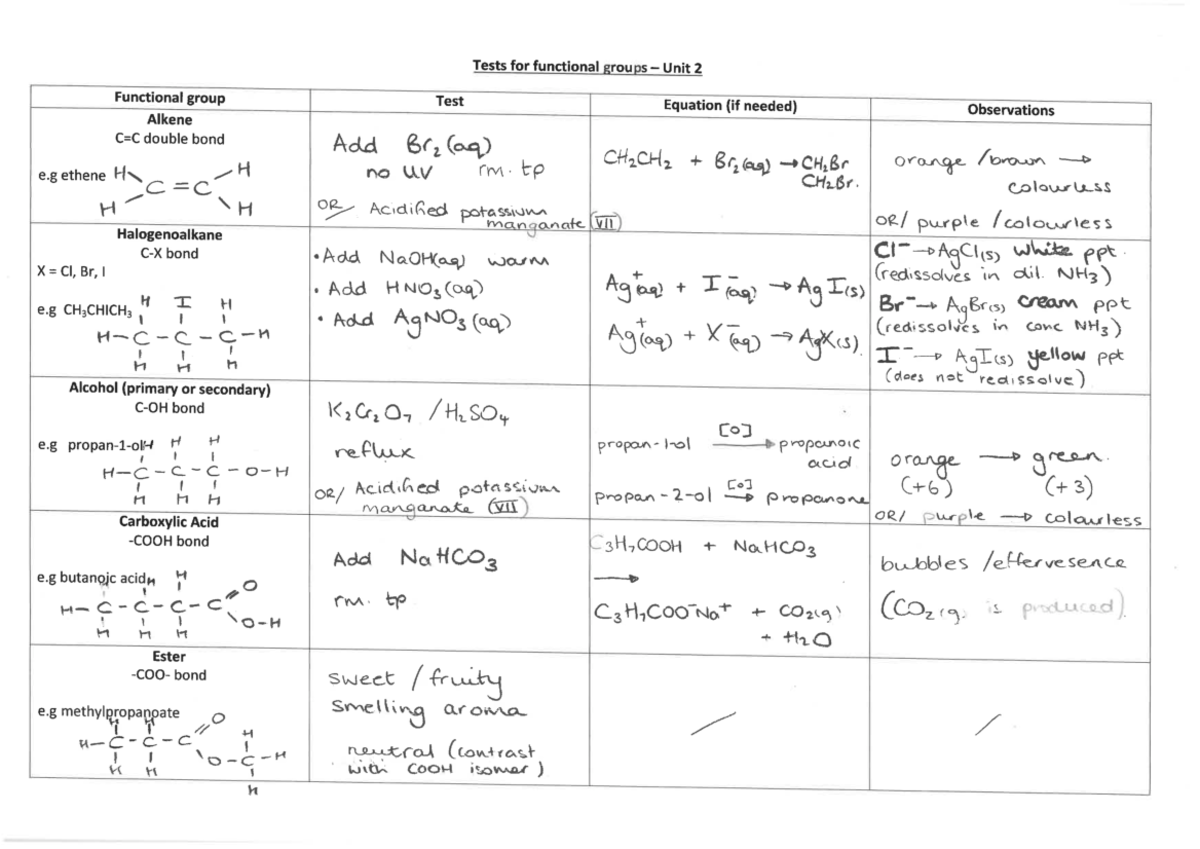 Tests for functional groups – Unit 2
Functional group
Test
Equation (if needed)
Observations
Alkene
C=C double bond
e.g ethene
H H
C = C
H H
Add Br₂(aq)
no UV rm. tp
OR/ Acidified potassium
manganate (VII)
CH₂CH₂ + Br₂(aq) → CH₂Br
CH₂Br.
orange /brown →
colourless
OR/ purple /colourless
Halogenoalkane
C-X bond
X = Cl, Br, I
e.g CH₃CHICH₃
H I H
H – C – C – C – H
H H H
• Add NaOH(aq) warm
• Add HNO₃(aq)
• Add AgNO₃(aq)
Ag⁺(aq) + I⁻(aq) → AgI(s)
Ag⁺(aq) + X⁻(aq) → AgX(s).
Cl⁻ → AgCl(s) white ppt.
(redissolves in dil. NH₃)
Br⁻ → AgBr(s) cream ppt
(redissolves in conc NH₃)
I⁻ → AgI(s) yellow ppt
(does not redissolve)
Alcohol (primary or secondary)
C-OH bond
e.g propan-1-ol
H H H
H – C – C – C – O – H
H H H
K₂Cr₂O₇ /H₂SO₄
reflux
OR/ Acidified potassium
manganate (VII)
propan-1-ol [O] → propanoic
acid
propan-2-ol [O] → propanone
orange → green.
(+6) (+3)
OR/ purple → colourless
Carboxylic Acid
-COOH bond
e.g butanoic acid
H H O
H – C – C – C – C
O – H
H H H
Add NaHCO₃
rm. tp
C₃H₇COOH + NaHCO₃
→
C₃H₇COO⁻Na⁺ + CO₂(g)
+ H₂O
bubbles /effervesence
(CO₂(g) is produced).
Ester
-COO- bond
e.g methylpropanoate
H H O
H – C – C – C H
O – C – H
H H
H
sweet / fruity
smelling aroma
neutral (contrast
with COOH isomer)